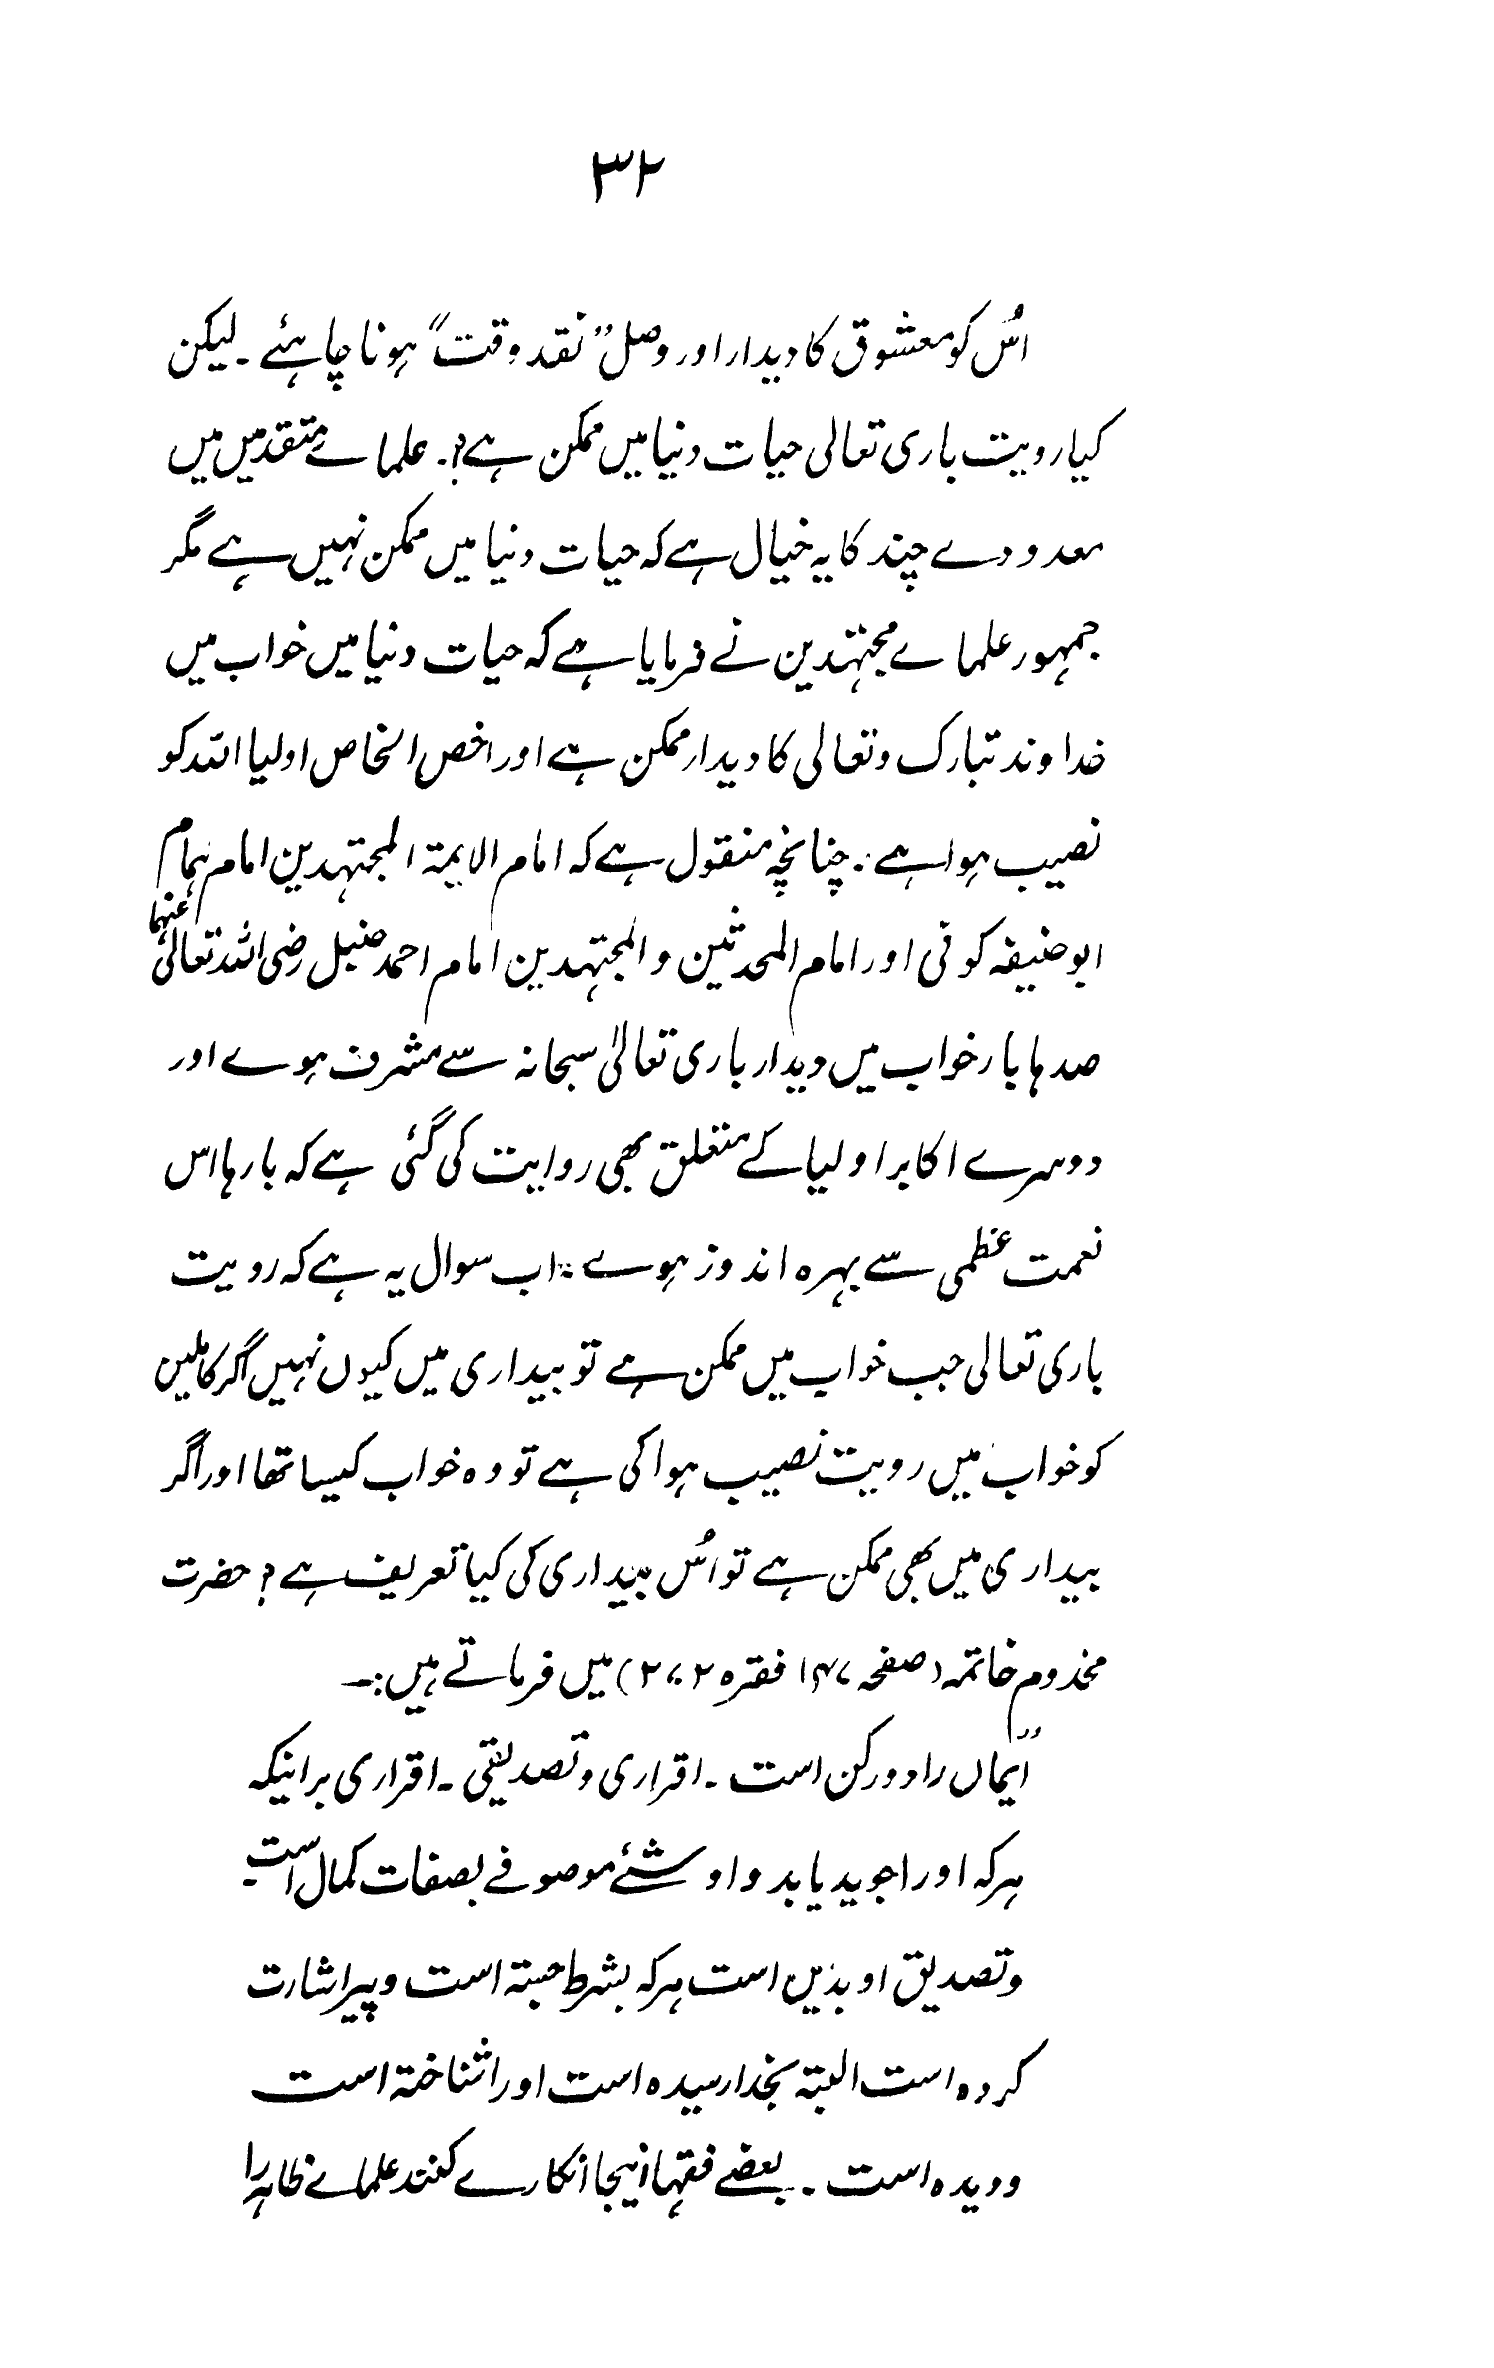 ۳۲
اُس کو معشوق کا دیدار اور وصل ”نقد وقت“ ہونا چاہئے ۔ لیکن
کیا رویت باری تعالی حیات دنیا میں ممکن ہے؟۔ علماے متقدمیں میں
معدودے چند کا یہ خیال ہے کہ حیات دنیا میں ممکن نہیں ہے مگر
جمہور علماے مجتہدین نے فرمایا ہے کہ حیات دنیا میں خواب میں
خداوند تبارک وتعالی کا دیدار ممکن ہے اور اخص الخاص اولیا اللہ کو
نصیب ہوا ہے ۔ چنانچہ منقول ہے کہ امام الایمۃ المجتہدین امام ہمام
ابو حنیفہ کوفی اور امام المحدثین و المجتہدین امام احمد حنبل رضی اللہ تعالیٰ عنہما
صدہا بار خواب میں دیدار باری تعالیٰ سبحانہ سے مشرف ہوے اور
دوسرے اکابر اولیا کے متعلق بھی روایت کی گئی ہے کہ بارہا اس
نعمت عظمی سے بہرہ اندوز ہوے ۔ اب سوال یہ ہے کہ رویت
باری تعالی جب خواب میں ممکن ہے تو بیداری میں کیوں نہیں اگر کاملیں
کو خواب میں رویت نصیب ہوا کی ہے تو وہ خواب کیسا تھا اور اگر
بیداری میں بھی ممکن ہے تو اُس بیداری کی کیا تعریف ہے؟ حضرت
مخدوم خاتمہ (صفحہ ۱۴۷ فقرہ ۲۷۲) میں فرماتے ہیں:۔
”ایماں را دو رکن است ۔ اقراری و تصدیقی ۔ اقراری بر اینکہ
ہر کہ او را جوید یابد و او شئے موصوفے بصفات کمال است ۔
و تصدیق او بذیں است ہر کہ بشرط جستہ است و پیر اشارت
کردہ است البتہ بخدا رسیدہ است او را شناختہ است
و دیدہ است ۔ بعضے فقہا اینجا انکارے کنند علماے ظاہر را